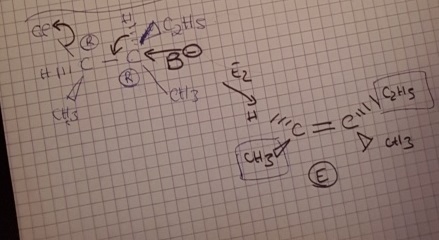 H
C2H5
R
H C – C B⊖
R
CH3 CH3
E2
H C = C C2H5
CH3 CH3
E